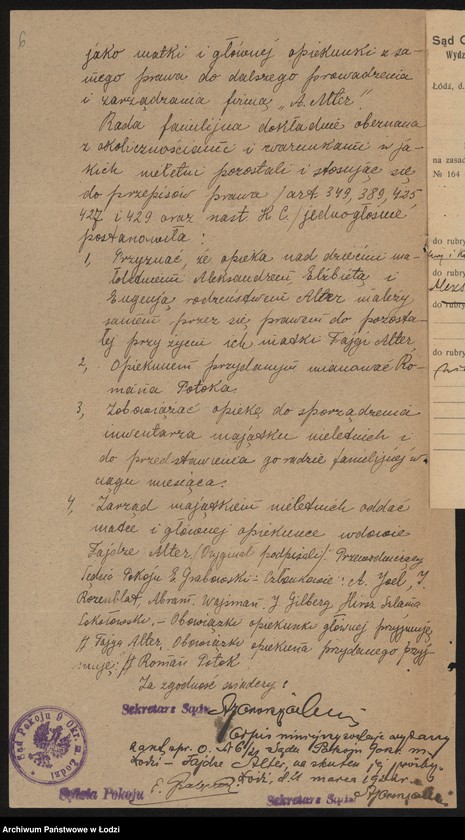 6
jako matki i głównej opiekunki z sa-
mego prawa do dalszego prowadzenia
i zarządzania firmą „A. Alter”.
Rada familijna dokładnie obeznana
z okolicznościami i warunkami w ja-
kich nieletni pozostali i stosując się
do przepisów prawa /art. 349, 389, 425
427 i 429 oraz nast. K C./ jednogłośnie
postanowiła:
1, Przyznać, że opieka nad dziećmi ma-
łoletniemi Aleksandrem Elżbietą i
Eugenją rodzeństwem Alter należy
samem przez się prawem do pozosta-
łej przy życiu ich matki Fajgi Alter.
2, Opiekunem przydanym mianować Ro-
mana Potoka.
3, Zobowiązać opiekę do sporządzenia
inwentarza majątku nieletnich i
do przedstawienia go radzie familijnej w
ciągu miesiąca.
4, Zarząd majątkiem nieletnich oddać
matce i głównej opiekunce wdowie
Fajdze Alter /Oryginał podpisali/: Przewodniczący
Sędzia Pokoju E. Grabowski - Członkowie: A. Joel, J.
Rozenblat, Abram Wajsman, J Gilberg, Hirsz
Sokołowski. - Obowiązki opiekunki głównej przyjmuję
/-/ Fajga Alter. Obowiązki opiekuna przydanego przyj-
muję: /-/ Roman Potok
Za zgodność świadczy:
Sekretarz Sądu
Sąd Pokoju 9 Okr. m. Łodzi
Kopis niniejszy wydany
Sądu Pokoju 9 okr. m.
Łodzi - Fajdze Alter, na skutek jej prośby.
Łódź, d. marca
Sędzia Pokoju
Sekretarz Sądu
Sąd O
Wydz
Łódź, d.
na zasad
№ 164
do rubry
do rubry
do rubry
do rubry
Archiwum Państwowe w Łodzi